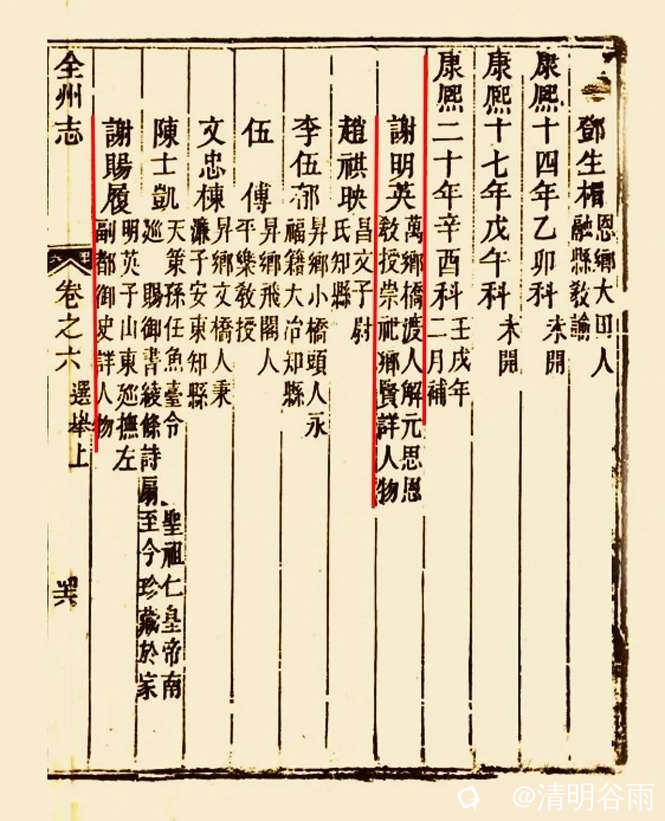 鄧生楫 恩鄉大田人
融縣教諭
康熙十四年乙卯科 未開
康熙十七年戊午科 未開
康熙二十年辛酉科 壬戌年
二月補
謝明英 萬鄉橋渡人解元思恩
教授崇祀鄉賢詳人物
趙祺映 昌文子尉
氏知縣
李伍 昇鄉小橋頭人永
福籍大冶知縣
伍傅 昇鄉飛閣人
平樂教授
文忠棟 昇鄉文橋人秉
濂子安東知縣
陳士凱 天策孫任魚臺令 聖祖仁皇帝南
廵 賜御書綾條詩扇至今珍藏於家
謝賜履 明英子山東廵撫左
副都御史詳人物
全州志 卷之六 選舉上
@清明谷雨